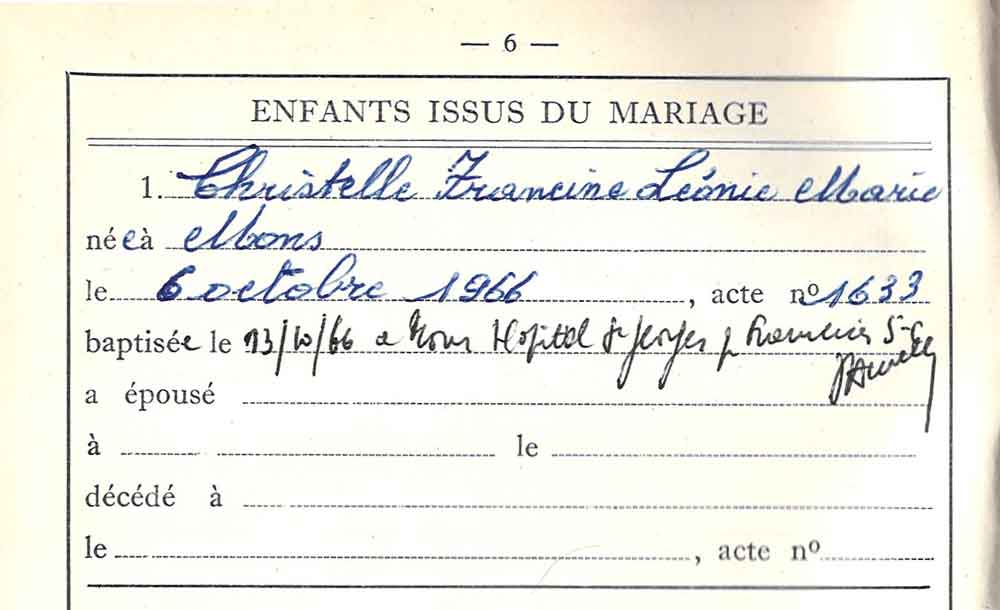 — 6 —
ENFANTS ISSUS DU MARIAGE
1. Christelle Francine Léonie Marie
née à Mons
le 6 octobre 1966, acte nº 1633
baptisée le 13/10/66 a Mons Hopital St Georges p
a épousé
à le
décédé à
le , acte nº